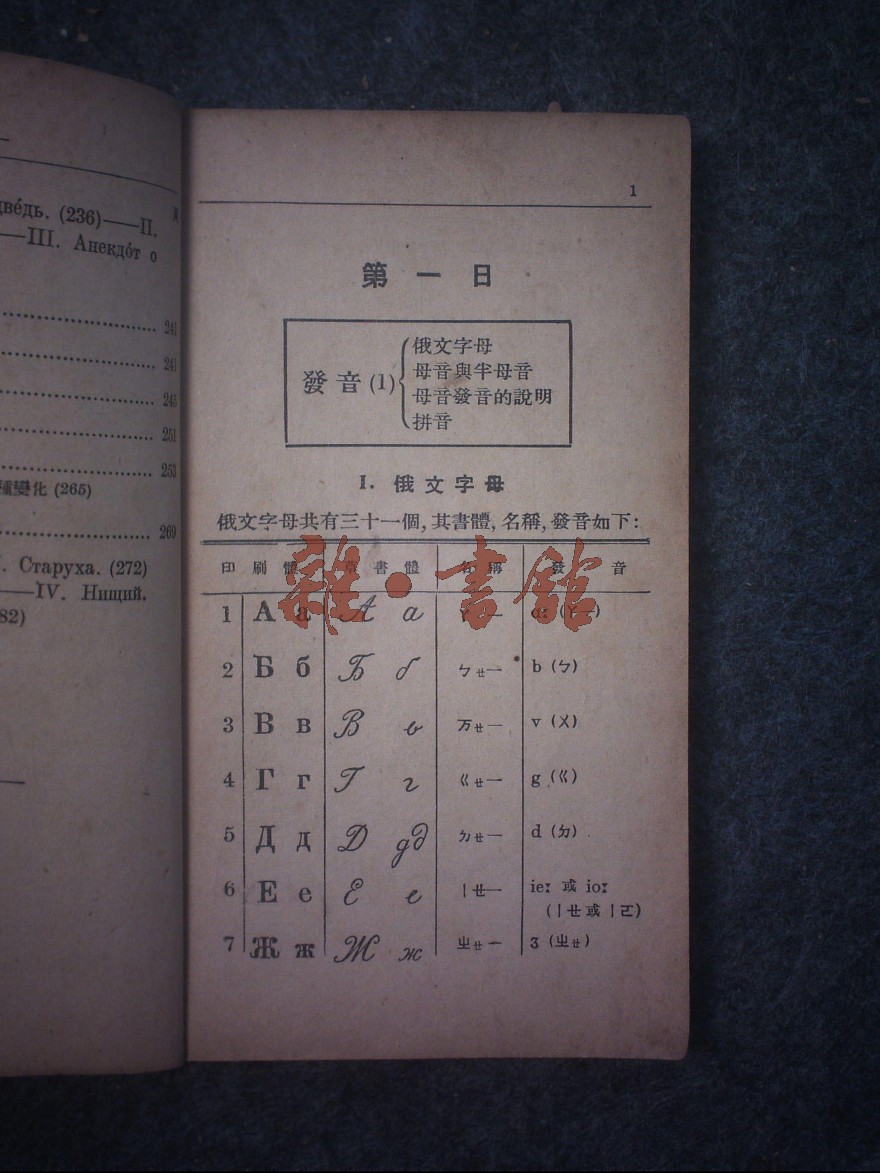 двéдь. (236)——II.
——III. Анекдóт о
241
241
245
251
253
種變化 (265)
269
Старуха. (272)
——IV. Нищий.
82)
1
第一日
發音(1)
俄文字母
母音與半母音
母音發音的說明
拼音
I. 俄文字母
俄文字母共有三十一個, 其書體, 名稱, 發音如下:
印刷體 草書體 名稱 發音
雜·書館
1 А а А а ㄚ一 a: (ㄚ一)
2 Б б Б б ㄅㄝ一 b (ㄅ)
3 В в В в ㄪㄝ一 v (ㄨ)
4 Г г Г г ㄍㄝ一 g (ㄍ)
5 Д д Д д д ㄉㄝ一 d (ㄉ)
6 Е е Е е ㄧㄝ一 ie: 或 io:
(ㄧㄝ或ㄧㄛ)
7 Ж ж Ж ж ㄓㄝ一 ʒ (ㄓㄝ)